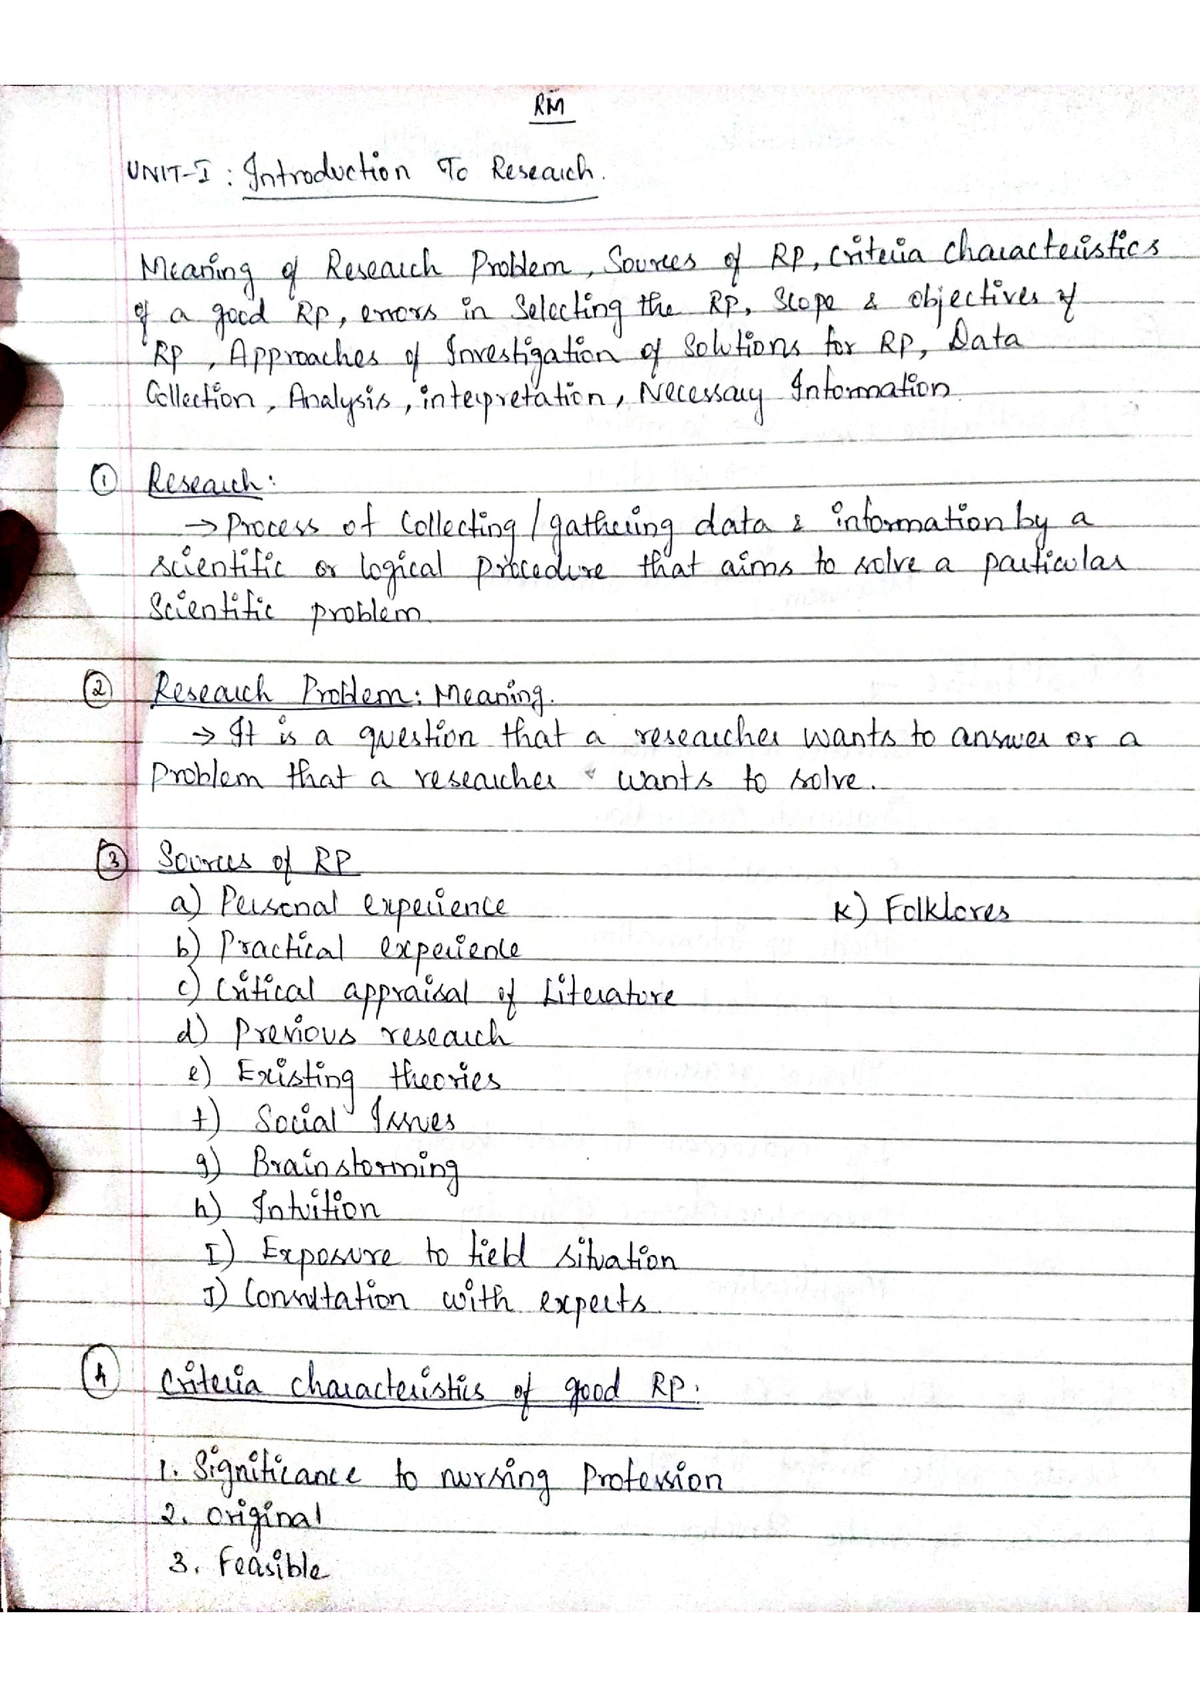 RM
UNIT-I : Introduction To Research.
Meaning of Research Problem, Sources of RP, Criteria characteristics
of a good RP, errors in Selecting the RP, Scope & objectives of
RP, Approaches of Investigation of Solutions for RP, Data
Collection, Analysis, interpretation, Necessary Information.
① Research:
→ Process of Collecting / gathering data & information by a
scientific or logical procedure that aims to solve a particular
Scientific problem.
② Research Problem: Meaning.
→ It is a question that a researcher wants to answer or a
Problem that a researcher wants to solve.
③ Sources of RP
a) Personal experience
b) Practical experience
c) Critical appraisal of Literature
d) Previous research
e) Existing theories
f) Social Issues
g) Brainstorming
h) Intuition
I) Exposure to field situation
J) Consultation with experts.
K) Folklores
④ Criteria characteristics of good RP:
1. Significance to nursing Profession
2. Original
3. Feasible